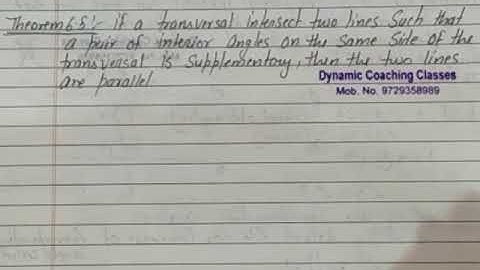 Theorem 6.5:- If a transversal intersect two lines Such that
a pair of interior angles on the Same Side of the
transversal is Supplementary, then the two lines
are parallel
Dynamic Coaching Classes
Mob. No. 9729358989